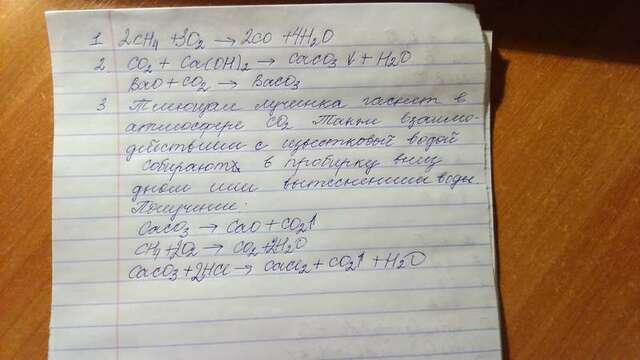 1 2CH₄ + 3O₂ → 2CO + 4H₂O
2 CO₂ + Ca(OH)₂ → CaCO₃ ↓ + H₂O
BaO + CO₂ → BaCO₃
3 Тлеющая лучинка гаснет в
атмосфере CO₂ Также взаимо-
действием с известковой водой
собирают в пробирку вниз
дном или вытеснением воды.
Получение:
CaCO₃ → CaO + CO₂↑
CH₄ + 2O₂ → CO₂ + 2H₂O
CaCO₃ + 2HCl → CaCl₂ + CO₂↑ + H₂O